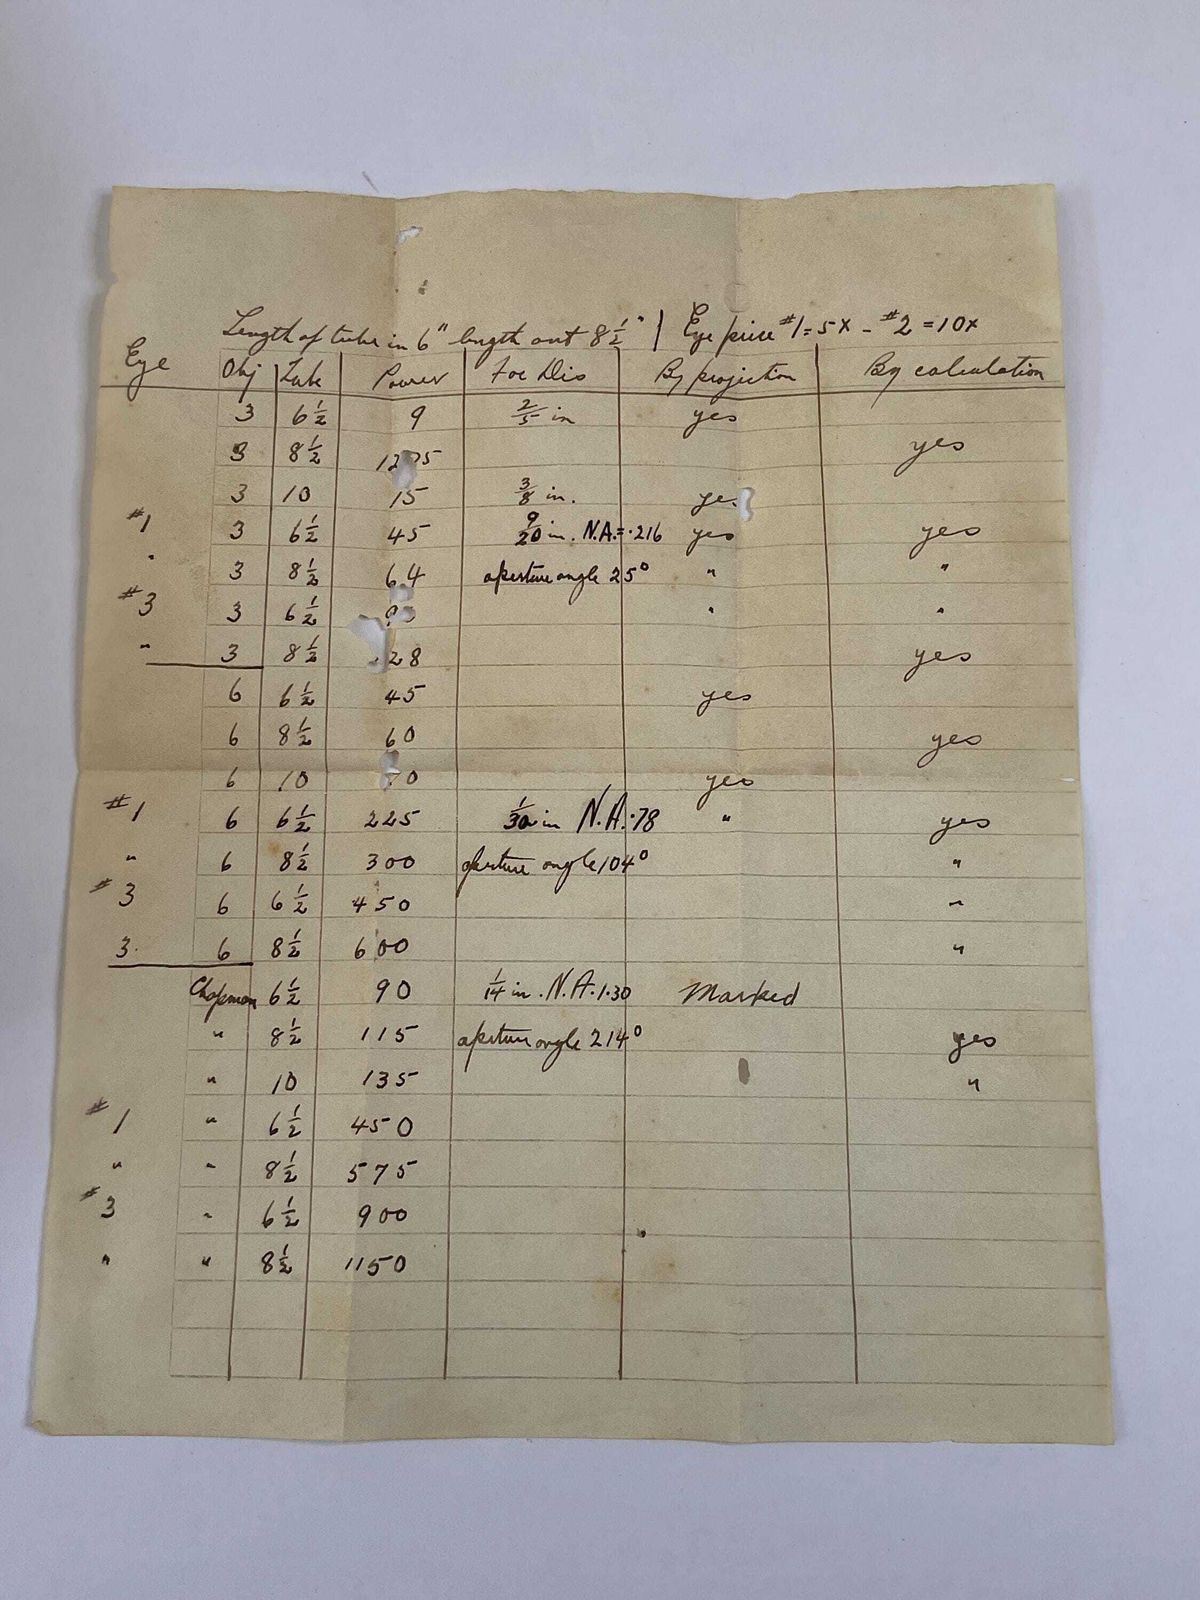 Length of tube in 6" length out 8 1/2" | Eye piece #1 = 5x - #2 = 10x
Eye Obj Tube Power Foc Dis By projection By calculation
3 6 1/2 9 2/5 in yes
3 8 1/2 yes
3 10 15 3/8 in. ye.
#1 3 6 1/2 45 9/20 in. N.A. = .216 yes yes
" 3 8 1/2 64 aperture angle 25° " "
#3 3 6 1/2 " "
" 3 8 1/2 28 yes
6 6 1/2 45 yes
6 8 1/2 60 yes
6 10 0 yes
#1 6 6 1/2 225 1/30 in N.A. .78 " yes
" 6 8 1/2 300 aperture angle 104° "
#3 6 6 1/2 450 "
3. 6 8 1/2 600 "
Chapman 6 1/2 90 1/14 in. N.A. 1.30 Marked
" 8 1/2 115 aperture angle 214° yes
" 10 135 "
#1 " 6 1/2 450
" " 8 1/2 575
#3 " 6 1/2 900
" " 8 1/2 1150